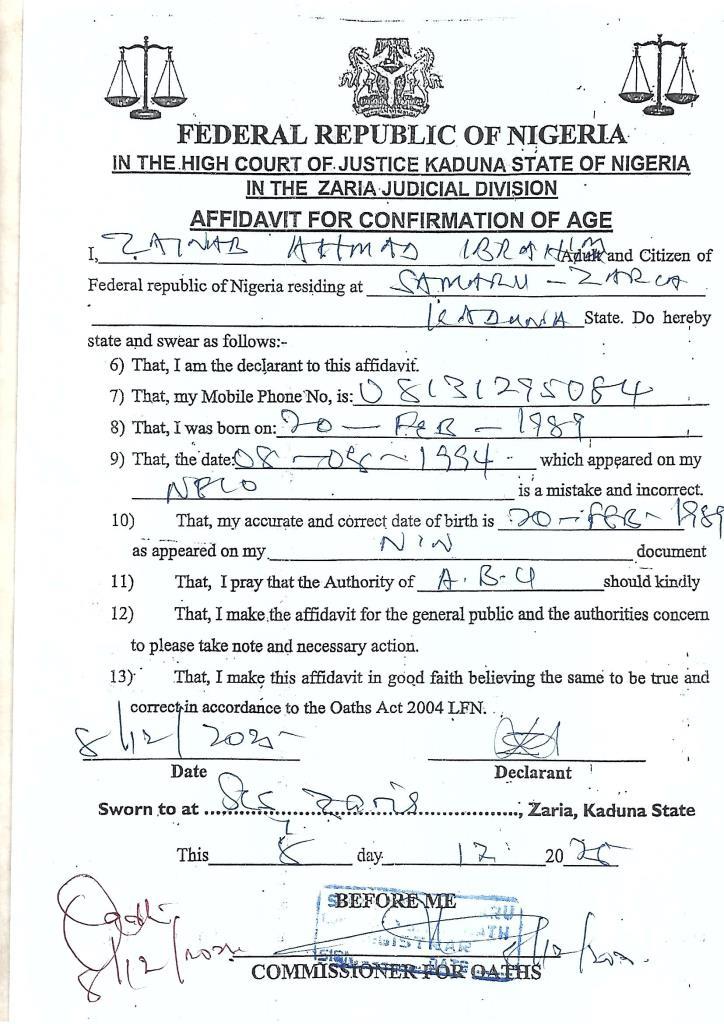 FEDERAL REPUBLIC OF NIGERIA
IN THE HIGH COURT OF JUSTICE KADUNA STATE OF NIGERIA
IN THE ZARIA JUDICIAL DIVISION
AFFIDAVIT FOR CONFIRMATION OF AGE
I, ZAINAB AHMAD IBRAHIM (Adult and Citizen of
Federal republic of Nigeria residing at SAMARU - ZARIA
KADUNA State. Do hereby
state and swear as follows:-
6) That, I am the declarant to this affidavit.
7) That, my Mobile Phone No, is: 08131295084
8) That, I was born on: 20 - FEB - 1989
9) That, the date: 08 - 08 - 1994 - which appeared on my
NECO is a mistake and incorrect.
10) That, my accurate and correct date of birth is 20 - FEB - 1989
as appeared on my NIN document
11) That, I pray that the Authority of A.B.U should kindly
12) That, I make the affidavit for the general public and the authorities concern
to please take note and necessary action.
13) That, I make this affidavit in good faith believing the same to be true and
correct in accordance to the Oaths Act 2004 LFN.
8/12/2025
Date Declarant
Sworn to at Zaria, Zaria, Kaduna State
This 8 day 12 2025
BEFORE ME
8/12/2025 8/12/2025
COMMISSIONER FOR OATHS